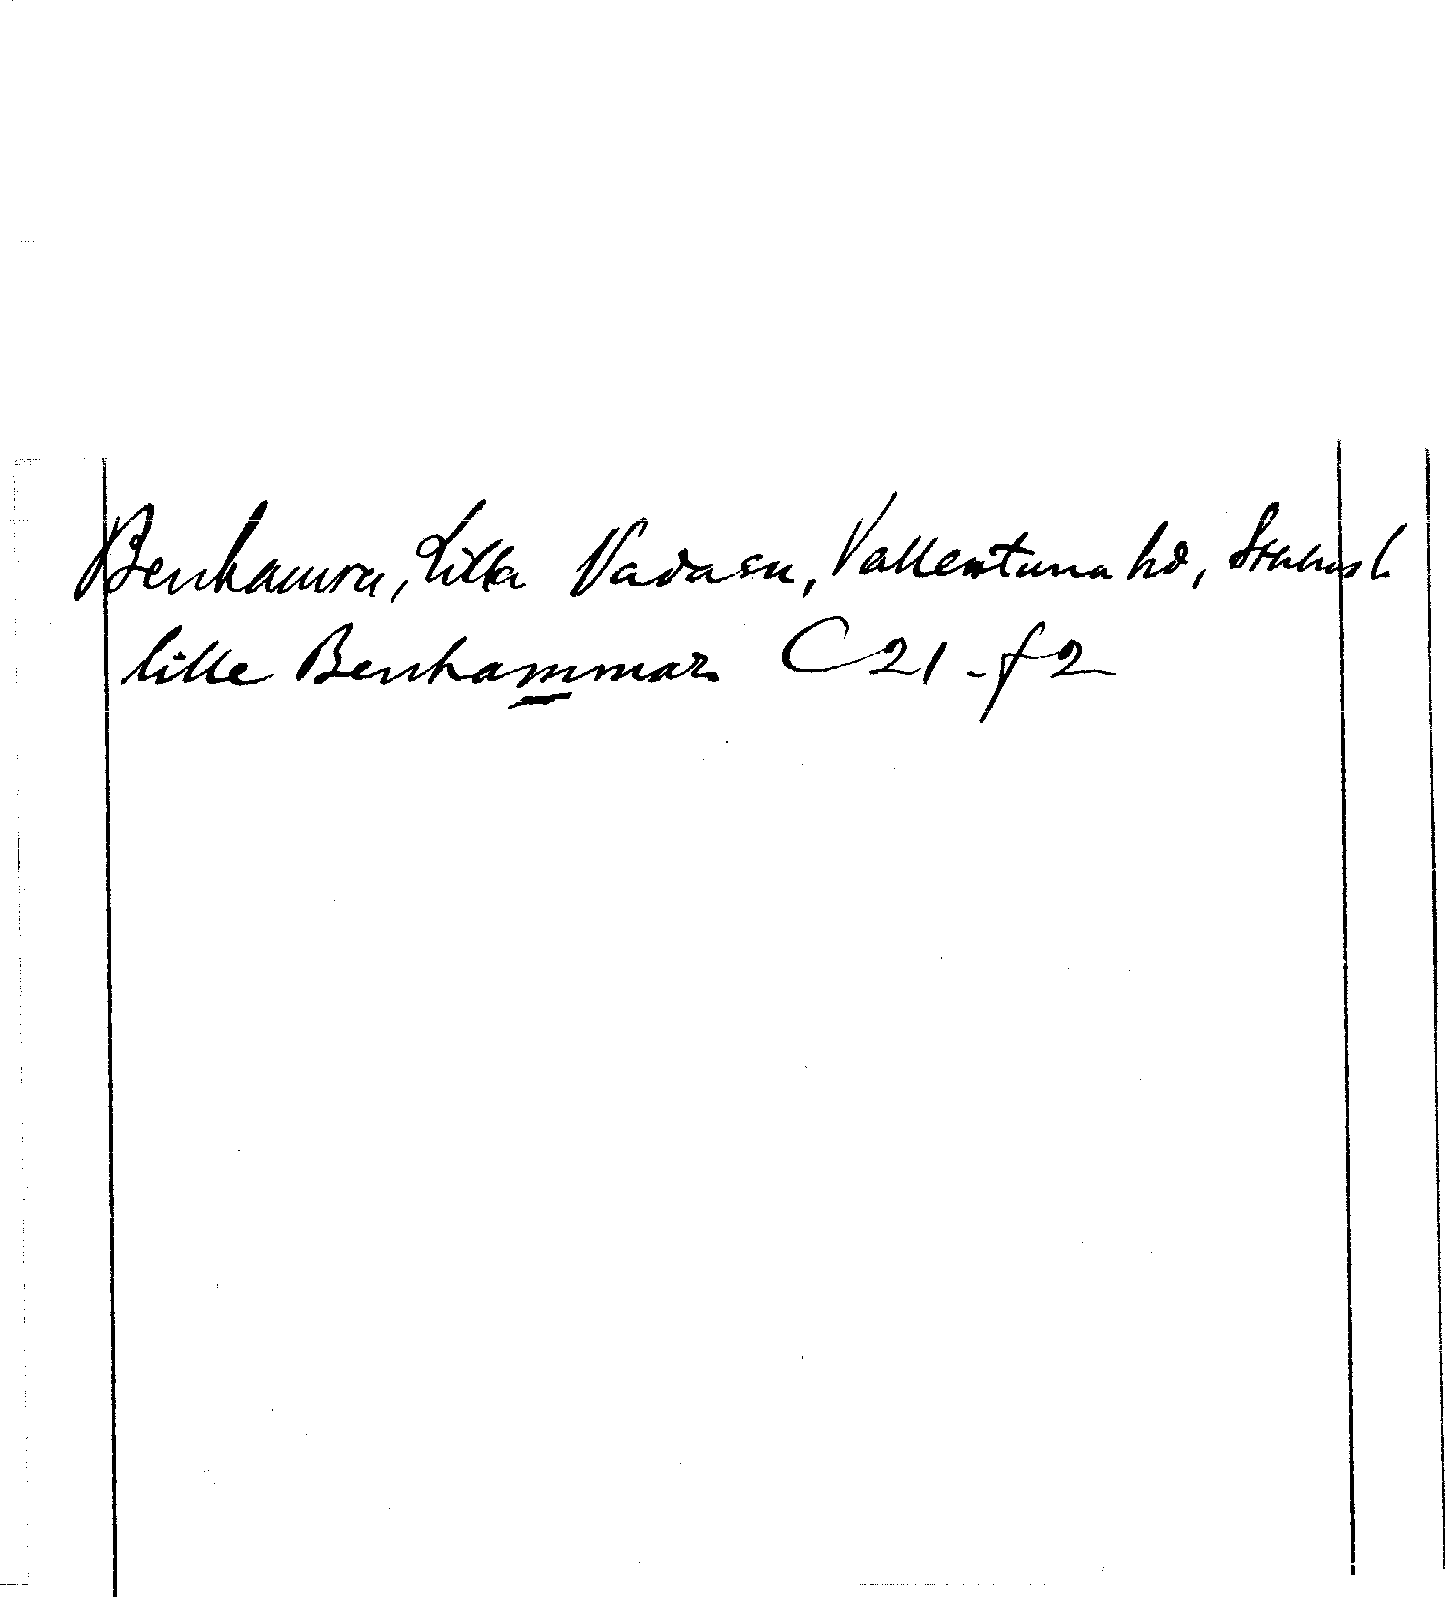 Benhamra, Lilla Vada sn, Vallentuna hd, Sthlms l.
lille Benhammar C21-f2